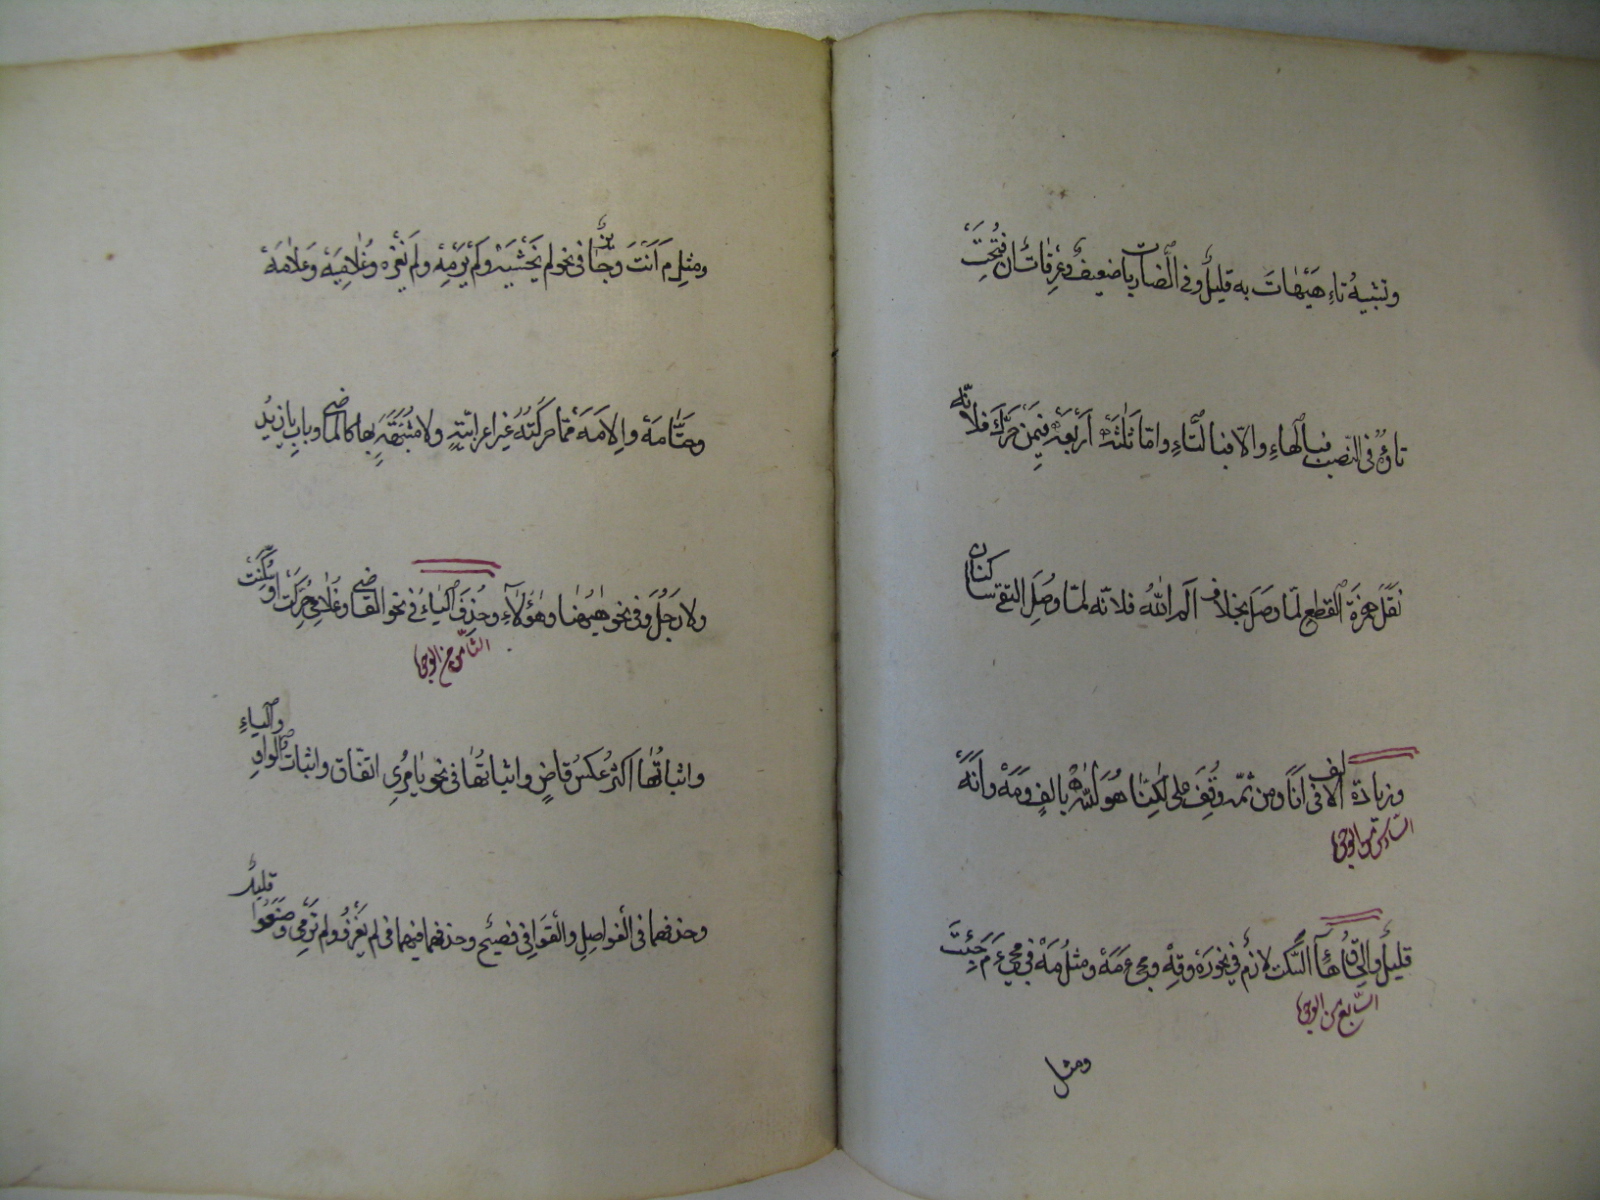 وتشبيهُ تاءِ هَيْهاتَ به قليلٌ وفى الضّاربات ضعيفٌ وعِرقاتٌ ان فُتِحَت
تاؤه فى النّصب فبالهاءِ والّا فبالتّاءِ وامّا ثلٰثَهَ اَرْبَعهْ فيمَن حَرَّكَ فلانّه
نَقَلَ همزةَ القطع لمّا وصَلَ بخلاف الٓم اللهُ فلانّه لمّا وُصِلَ التقى ساكنان
وزيادةُ الالف فى اَنَا ومن ثمّه وُقِفَ على لٰكِنّا هُوَ اللهُ بالفٍ ومَهْ واَنَهْ
السّادس من الوجوه
قليلٌ والحاقُ هآءِ السّكت لازمٌ فى نحو رَهْ وقِهْ ومجىءَ مَهْ ومثلُ مَهْ فى مجىءَ مَ جِئْتَ
السّابع من الوجوه
ومثل
ومثلِ مَ اَنْتَ وجائزٌ فى نحو لم يَخْشَهْ ولم يَرْمِهْ ولم يَغْزُهْ وغُلامِيَهْ وعَلامَهْ
وحتّامَهْ والامَهْ ممّا حركتُهُ غير اعرابيّةٍ ولا مشبّهةٍ بها كالماضى وباب يا زيدُ
ولا رَجُلَ وفى نحو هٰهُناه وهٰؤلاءِ وحُذِفَ الياءُ فى نحو القاضى وغُلامى حُرِّكَت او سُكِّنَت
الثّامن من الوجوه
واثباتُها اكثرُ عكسُ قاضٍ واثباتُها فى نحو يا مُرِى اتفاق واثبات الواوِ والياءِ
وحذفهما فى الفواصِلِ والقَوَافى فصيح وحذفهما فيهما فى لم يَغْزُو ولم تَرْمِى وصَنَعُوا قليلٌ